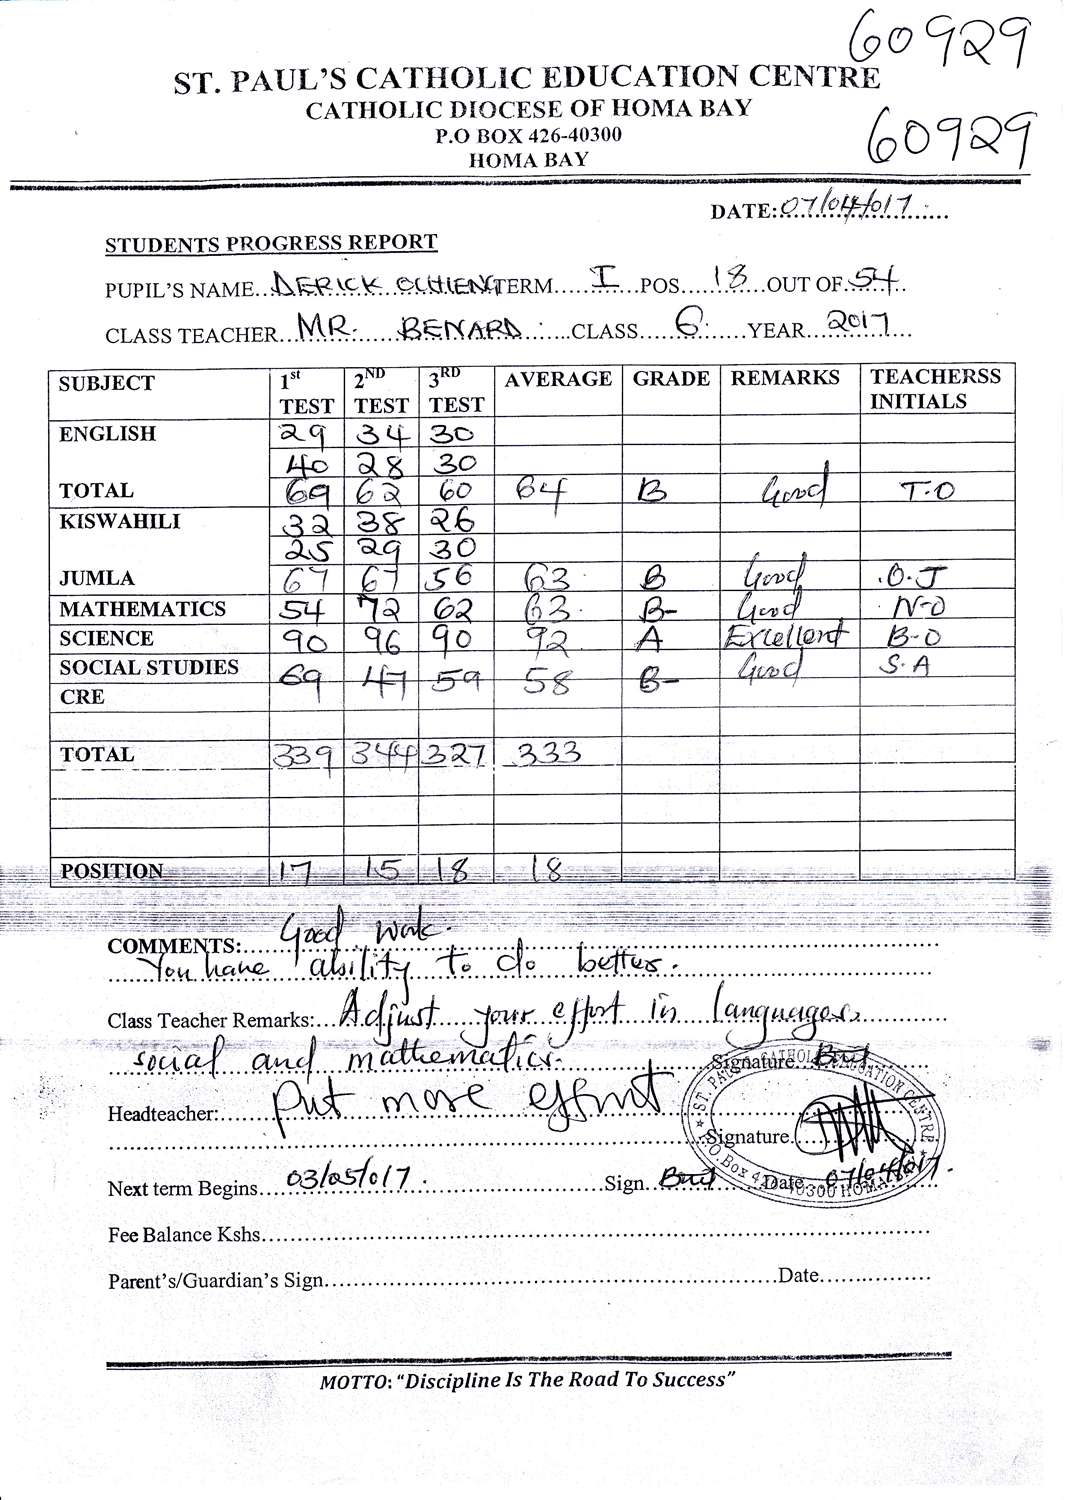 60929
ST. PAUL'S CATHOLIC EDUCATION CENTRE
CATHOLIC DIOCESE OF HOMA BAY
P.O BOX 426-40300
60929
HOMA BAY
DATE: 07/04/017
STUDENTS PROGRESS REPORT
PUPIL'S NAME DERICK OCHIENG TERM I POS 18 OUT OF 54
CLASS TEACHER MR. BENARD CLASS 6 YEAR 2017
SUBJECT 1st TEST 2ND TEST 3RD TEST AVERAGE GRADE REMARKS TEACHERSS INITIALS
ENGLISH 29 34 30
40 28 30
TOTAL 69 62 60 64 B Good T.O
KISWAHILI 32 38 26
25 29 30
JUMLA 67 67 56 63 B Good O.J
MATHEMATICS 54 72 62 63 B- Good N-O
SCIENCE 90 96 90 92 A Excellent B-O
SOCIAL STUDIES 69 47 59 58 B- Good S.A
CRE
TOTAL 339 344 327 333
POSITION 17 15 18 18
COMMENTS: Good work.
You have ability to do better.
Class Teacher Remarks: Adjust your effort in languages,
social and mathematics. Signature
Headteacher: Put more effort
Signature
Next term Begins 03/05/017. Sign. Date 07/04/017.
Fee Balance Kshs
Parent's/Guardian's Sign Date
MOTTO: "Discipline Is The Road To Success"